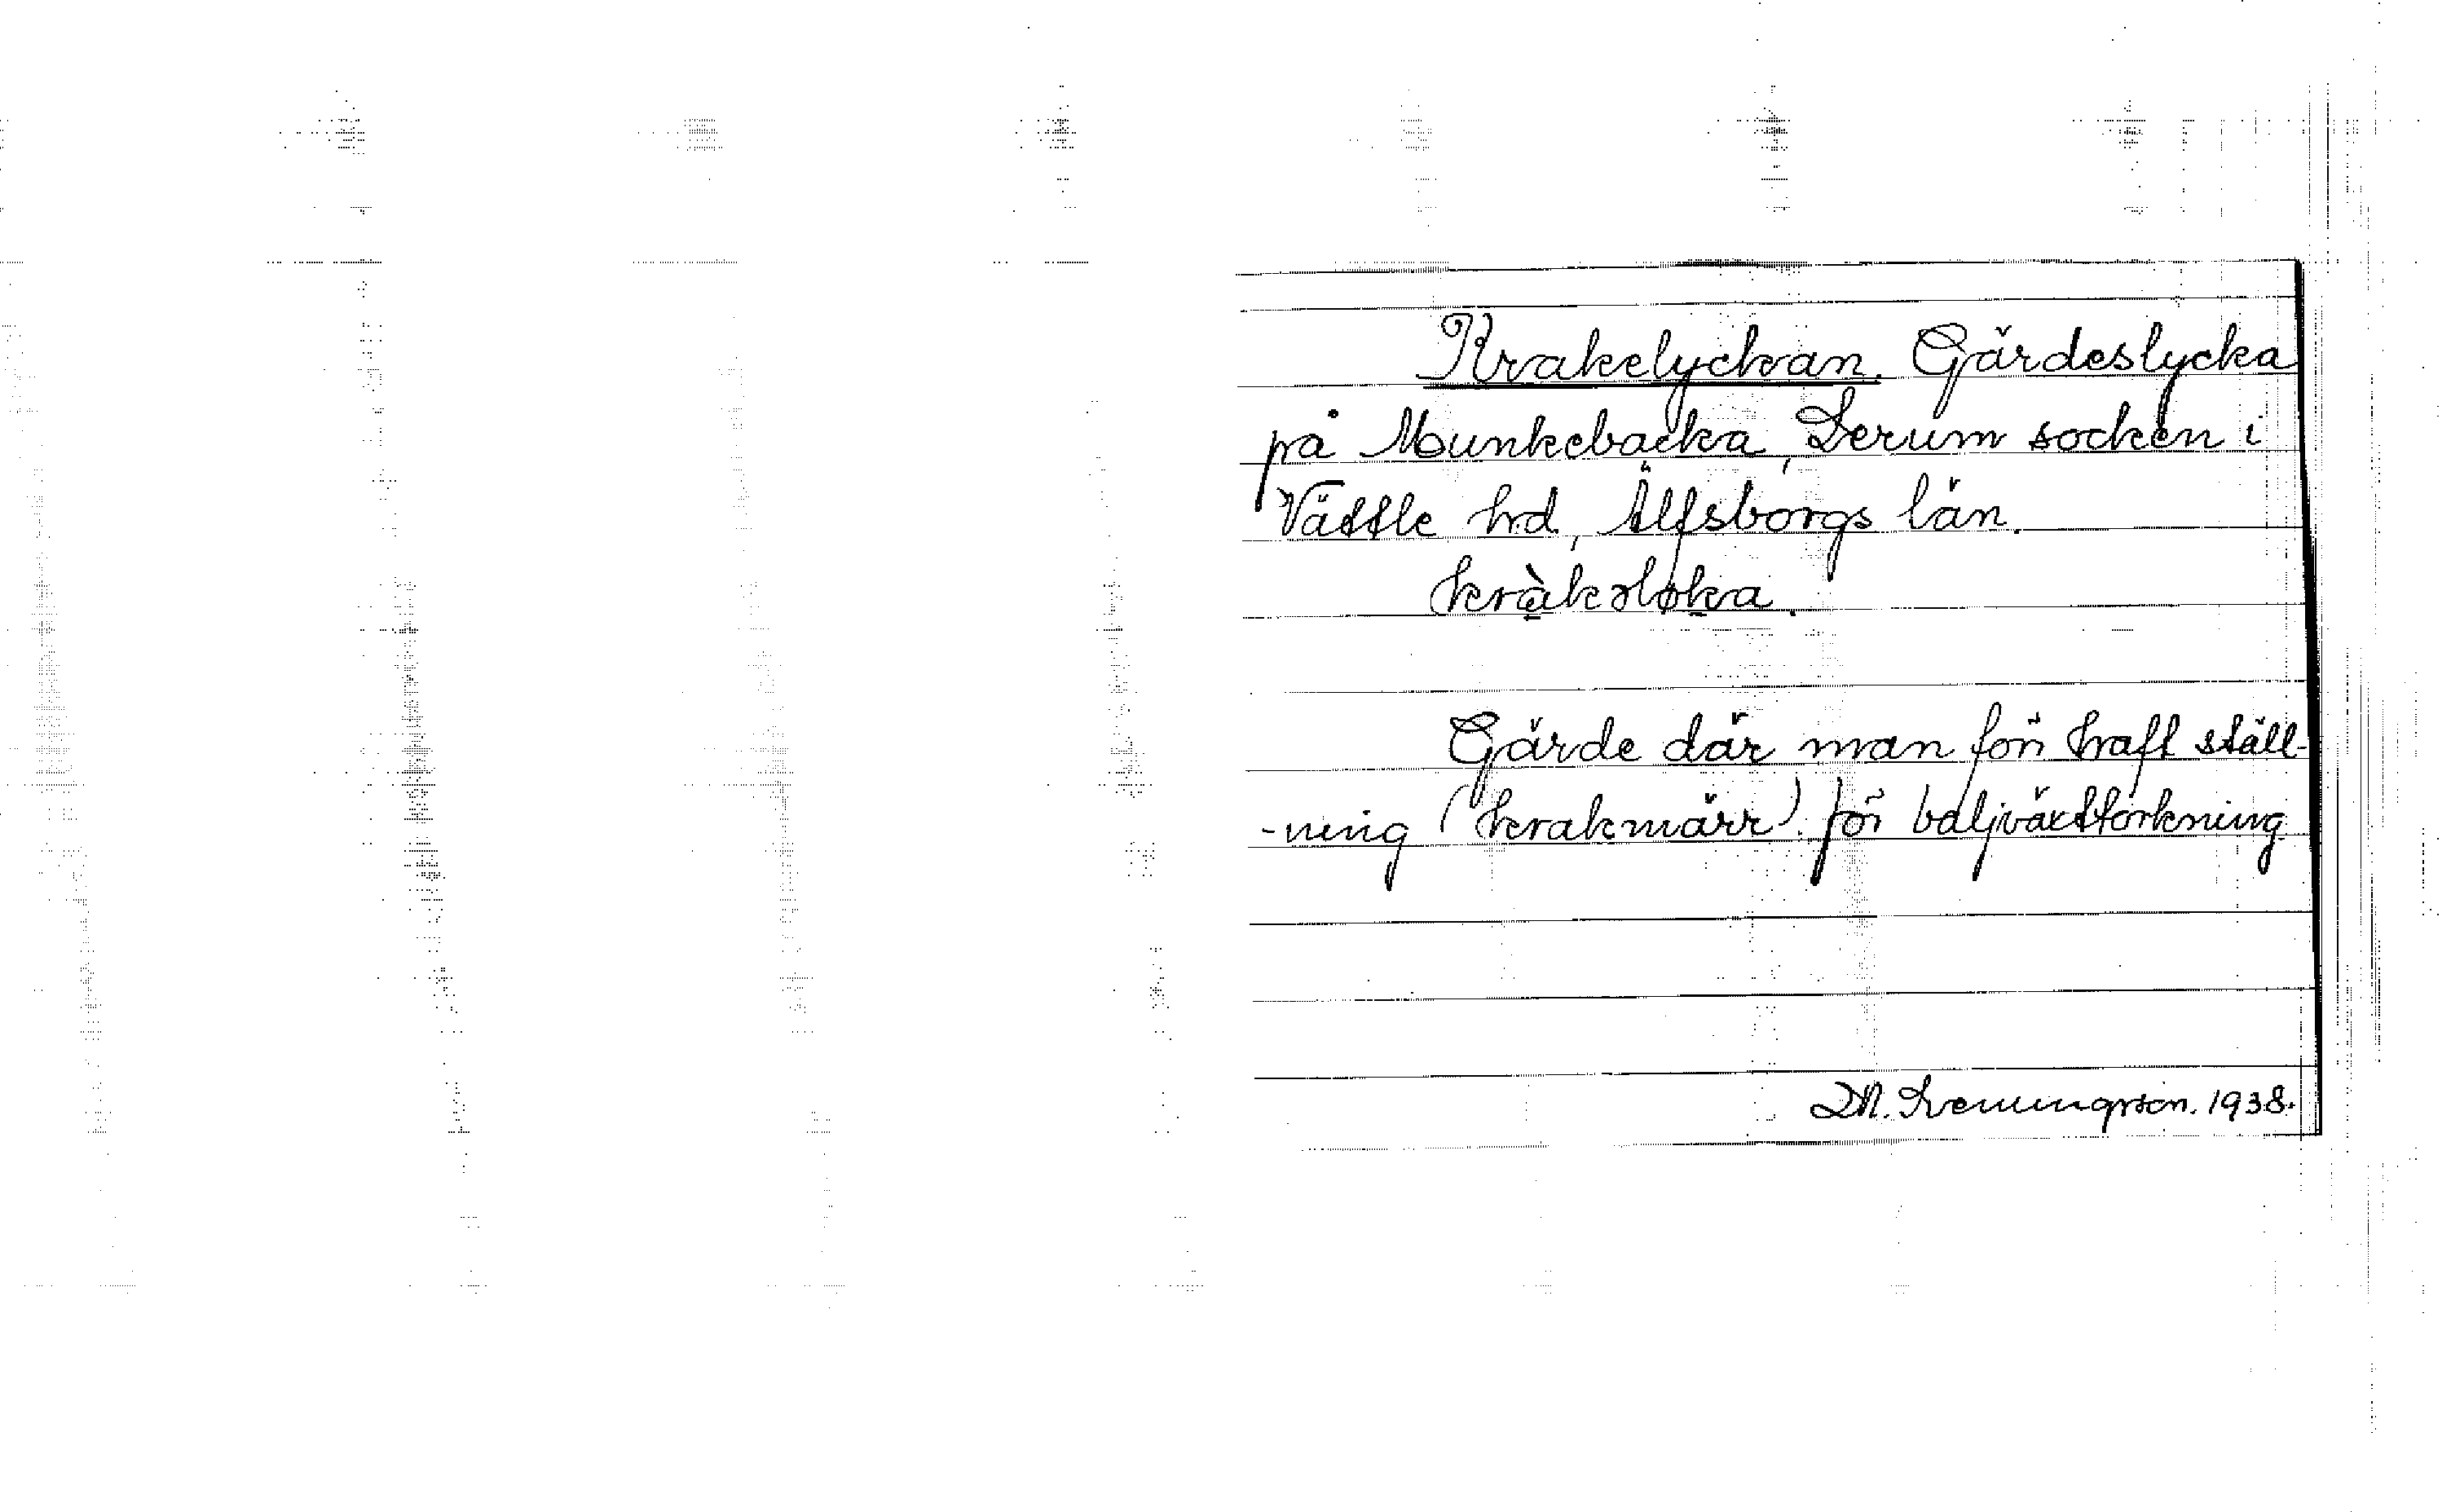 Krakelyckan. Gärdeslycka
på Munkebacka, Lerum socken i
Vättle hd, Älfsborgs län.
kràkəløka.
Gärde där man förr haft ställ-
-ning (krakmärr) för baljväxttorkning
1938.